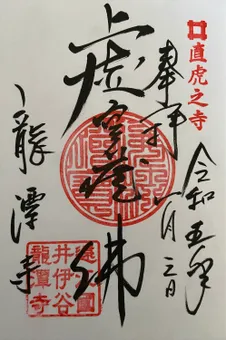 直虎之寺
奉拝
令和五年
月三日
虚空蔵佛
龍潭寺
遠江國
井伊谷
龍潭寺